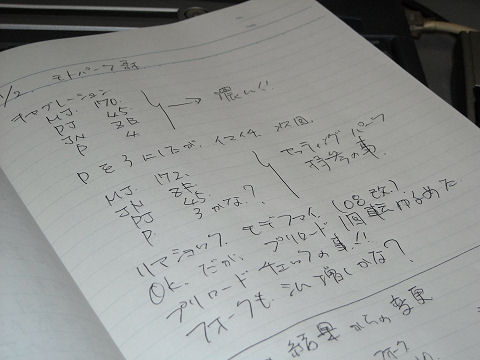 1/2. モトパーク 森
キャブレーション
MJ. 170.
PJ 45.
JN 8E
P 4
→ 濃いぃ!!
Pを3にしたが、イマイチ、次回、
MJ. 172.
JN 8E.
PJ 45.
P. 3かな?
セッティングパーツ
持参の事.
リヤショック. モデファイ. (08改).
OK. だが、プリロード 1回転ゆるめた
プリロードチェックの事!!
フォークも 少し増しかな?
結果からの変更
フォーク